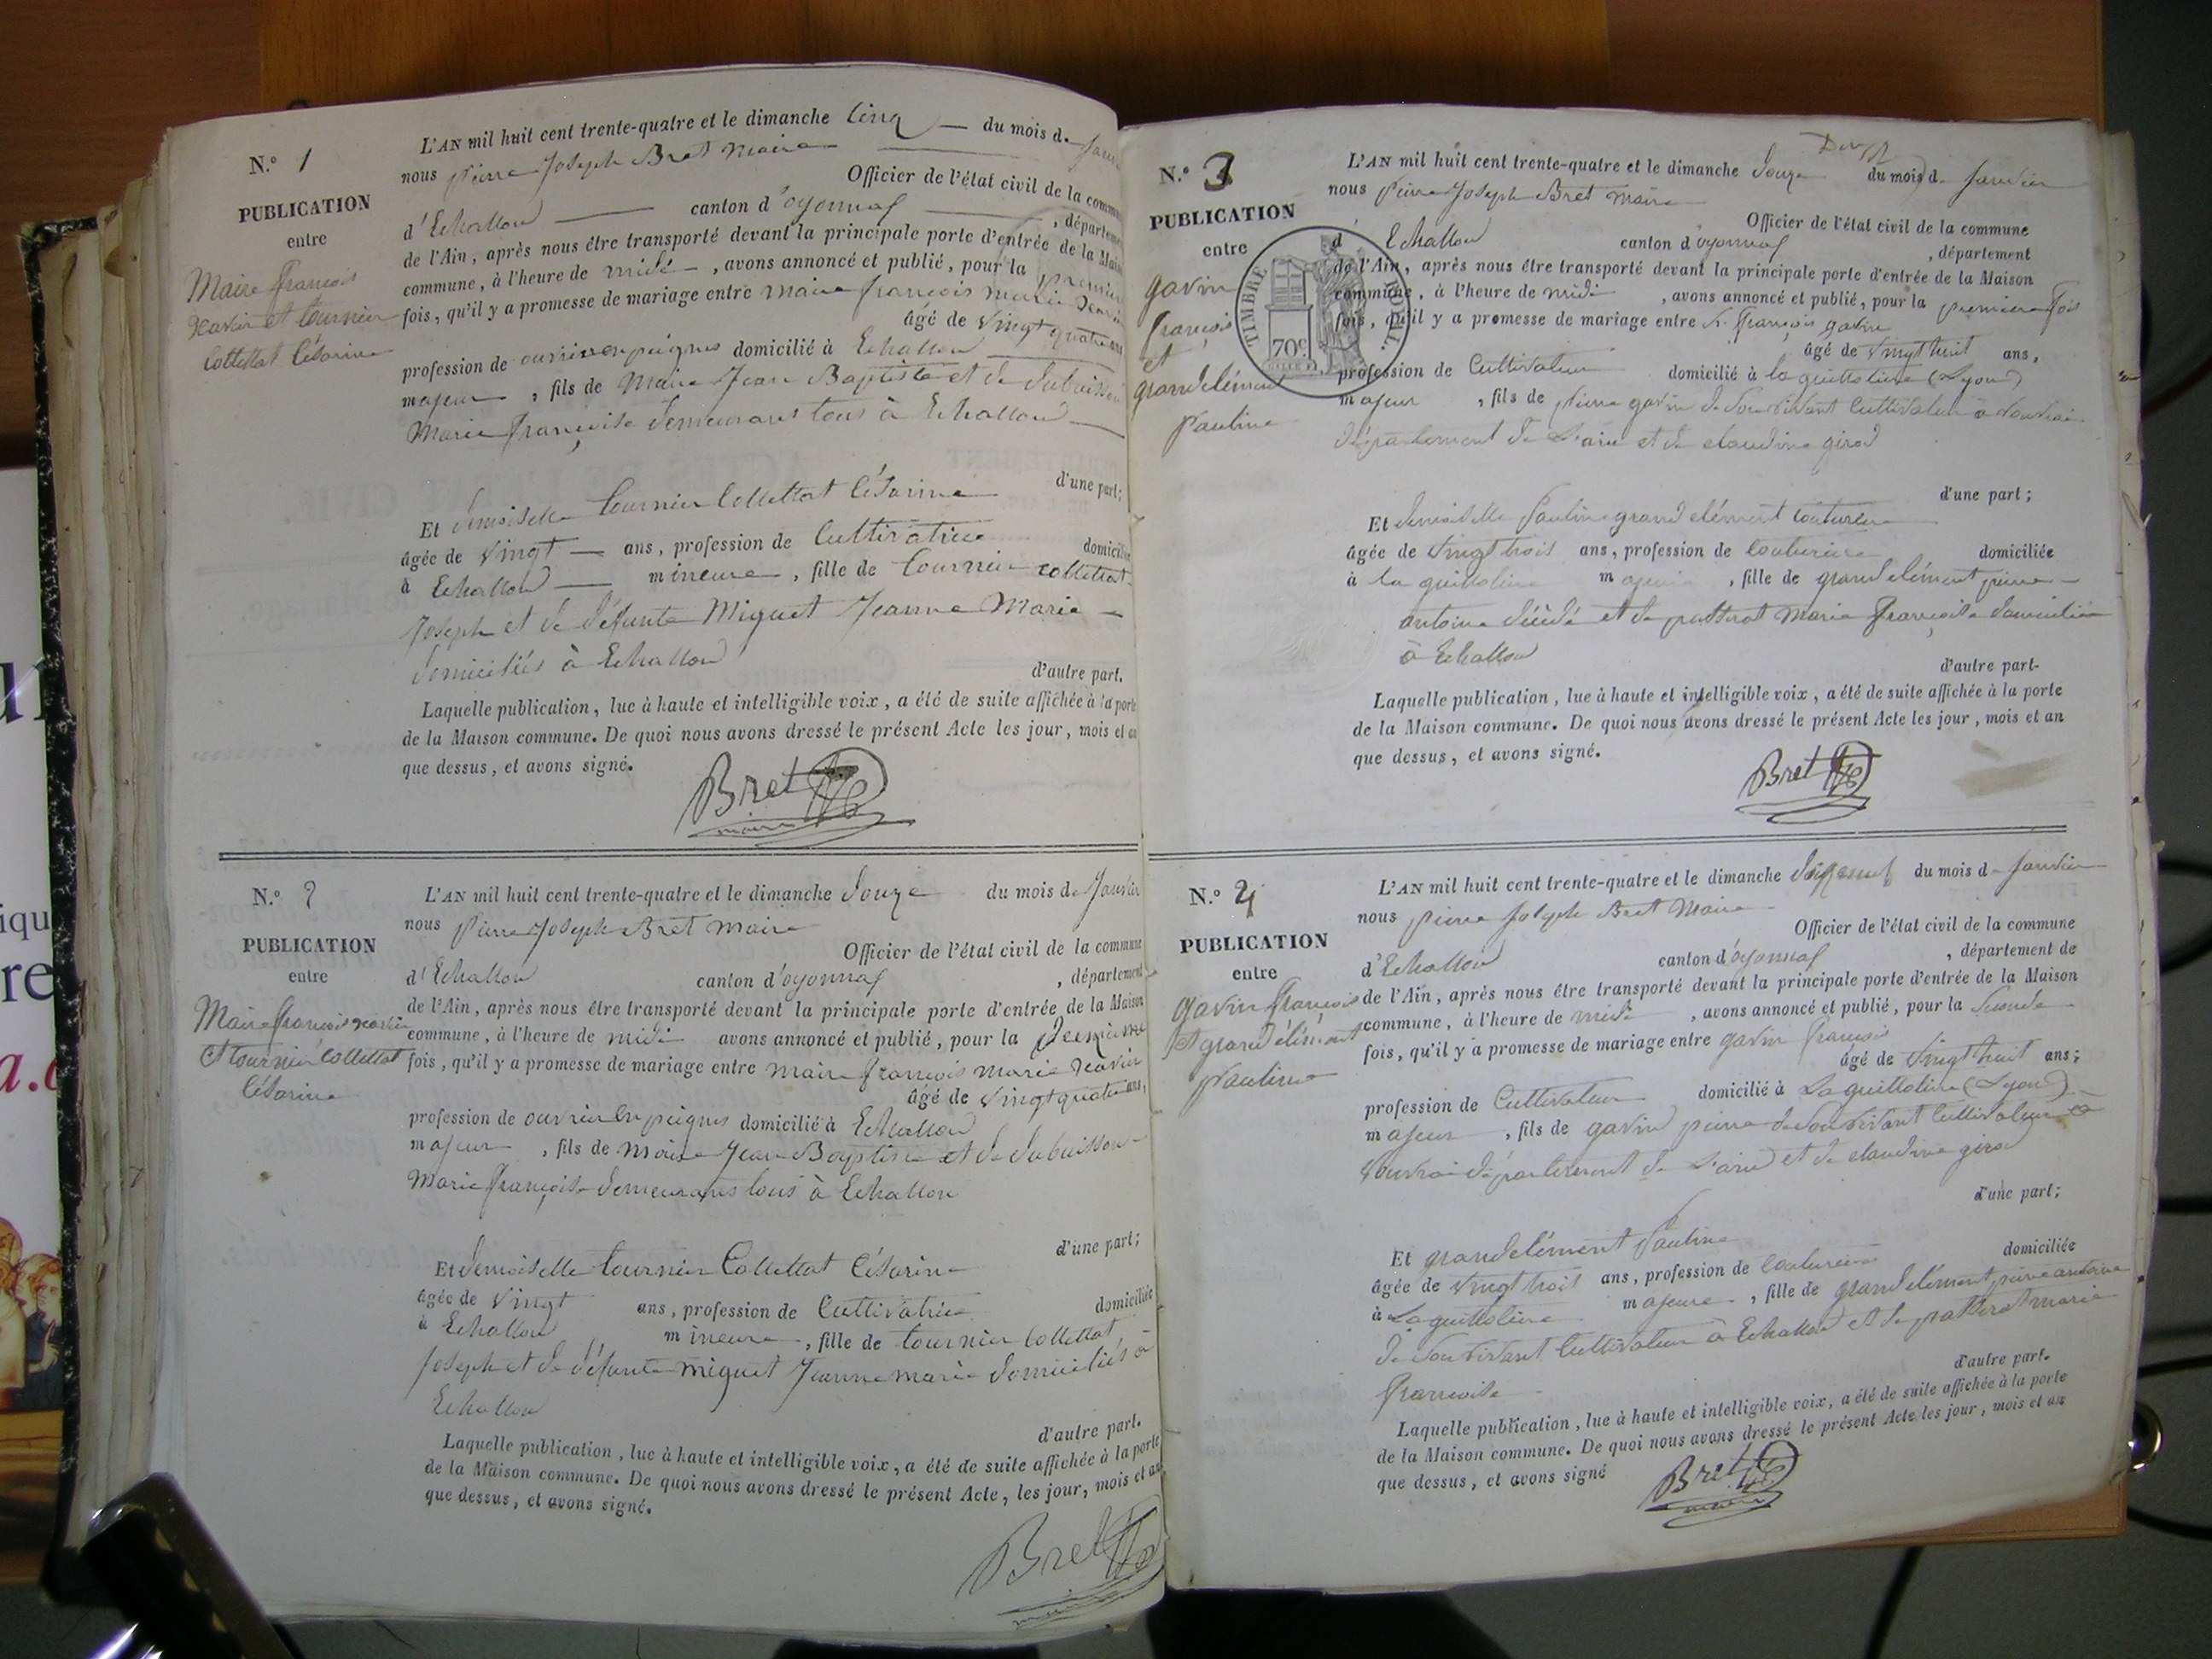 N.° 1
PUBLICATION
entre
Maire françois
Xavier et tournier
Collettat Césarine
L'AN mil huit cent trente-quatre et le dimanche Cinq du mois d.
nous Pierre Joseph Bret Maire
Officier de l'état civil de la commu
d'Echallon canton d'oyonnax , départeme
de l'Ain, après nous être transporté devant la principale porte d'entrée de la Mais
commune, à l'heure de midi , avons annoncé et publié, pour la premiere
fois, qu'il y a promesse de mariage entre Maire françois Marie Xavier
âgé de Vingt quatre ans
profession de ouvrier en peignes domicilié à Echallon
majeur , fils de Maire Jean Baptiste et de Dubuisson
Marie françoise demeurans tous à Echallon
d'une part;
Et demoiselle Tournier Collettat Césarine
âgée de Vingt ans, profession de Cultivatrice domicili
à Echallon mineure , fille de Tournier collettat
Joseph et de défunte Miguet Jeanne Marie
domiciliés à Echallon
d'autre part.
Laquelle publication, lue à haute et intelligible voix, a été de suite affichée à la porte
de la Maison commune. De quoi nous avons dressé le présent Acte les jour, mois et an
que dessus, et avons signé.
Bret
maire
N.° 2
PUBLICATION
entre
Maire françois xavier
et tournier collettat
Césarine
L'AN mil huit cent trente-quatre et le dimanche douze du mois de Janvier
nous Pierre Joseph Bret Maire
Officier de l'état civil de la commune
d'Echallon canton d'oyonnax , département
de l'Ain, après nous être transporté devant la principale porte d'entrée de la Maison
commune, à l'heure de midi avons annoncé et publié, pour la deuxieme
fois, qu'il y a promesse de mariage entre maire françois marie Xavier
âgé de Vingt quatre ans,
profession de ouvrier en peignes domicilié à Echallon
majeur , fils de Maire Jean Baptiste et de dubuisson
Marie françoise demeurans tous à Echallon
d'une part;
Et demoiselle Tournier Collettat Césarine
âgée de Vingt ans, profession de Cultivatrice domiciliée
à Echallon mineure , fille de Tournier Collettat
Joseph et de défunte miguet Jeanne marie domiciliés à
Echallon
d'autre part.
Laquelle publication, lue à haute et intelligible voix, a été de suite affichée à la porte
de la Maison commune. De quoi nous avons dressé le présent Acte, les jour, mois et an
que dessus, et avons signé.
Bret
N.° 3
PUBLICATION
entre
gavin
françois
et
grandclément
Pauline
TIMBRE ROYAL
70c
L'AN mil huit cent trente-quatre et le dimanche douze du mois d. Janvier
nous Pierre Joseph Bret Maire
Officier de l'état civil de la commune
d Echallon canton d'oyonnax , département
de l'Ain, après nous être transporté devant la principale porte d'entrée de la Maison
commune, à l'heure de midi , avons annoncé et publié, pour la premiere fois
fois, qu'il y a promesse de mariage entre Sr. françois gavin
âgé de Vingt huit ans,
profession de Cultivateur domicilié à la guillotiere (Lyon)
majeur , fils de pierre gavin de Son vivant Cultivateur à
département de L'ain et de claudine girod
d'une part;
Et demoiselle Pauline grand clément couturiere
âgée de Vingt trois ans, profession de Couturiere domiciliée
à la guillotiere majeure , fille de grandclément pierre
antoine décédé et de Marie françoise domiciliée
à Echallon
d'autre part.
Laquelle publication, lue à haute et intelligible voix, a été de suite affichée à la porte
de la Maison commune. De quoi nous avons dressé le présent Acte les jour, mois et an
que dessus, et avons signé.
Bret
N.° 4
PUBLICATION
entre
gavin françois
et grandclément
Pauline
L'AN mil huit cent trente-quatre et le dimanche dixneuf du mois d Janvier
nous pierre Joseph Bret Maire
Officier de l'état civil de la commune
d'Echallon canton d'oyonnax , département de
de l'Ain, après nous être transporté devant la principale porte d'entrée de la Maison
commune, à l'heure de midi , avons annoncé et publié, pour la Seconde
fois, qu'il y a promesse de mariage entre gavin françois
âgé de Vingt huit ans;
profession de Cultivateur domicilié à La guillotiere (Lyon)
majeur , fils de gavin pierre de Son vivant Cultivateur à
département de L'ain et de claudine girod
d'une part;
Et grandclément Pauline
âgée de Vingt trois ans, profession de Couturiere domiciliée
à La guillotiere majeure , fille de grandclément pierre antoine
de Son vivant Cultivateur à Echallon et de marie
françoise
d'autre part.
Laquelle publication, lue à haute et intelligible voix, a été de suite affichée à la porte
de la Maison commune. De quoi nous avons dressé le présent Acte les jour, mois et an
que dessus, et avons signé
Bret
maire